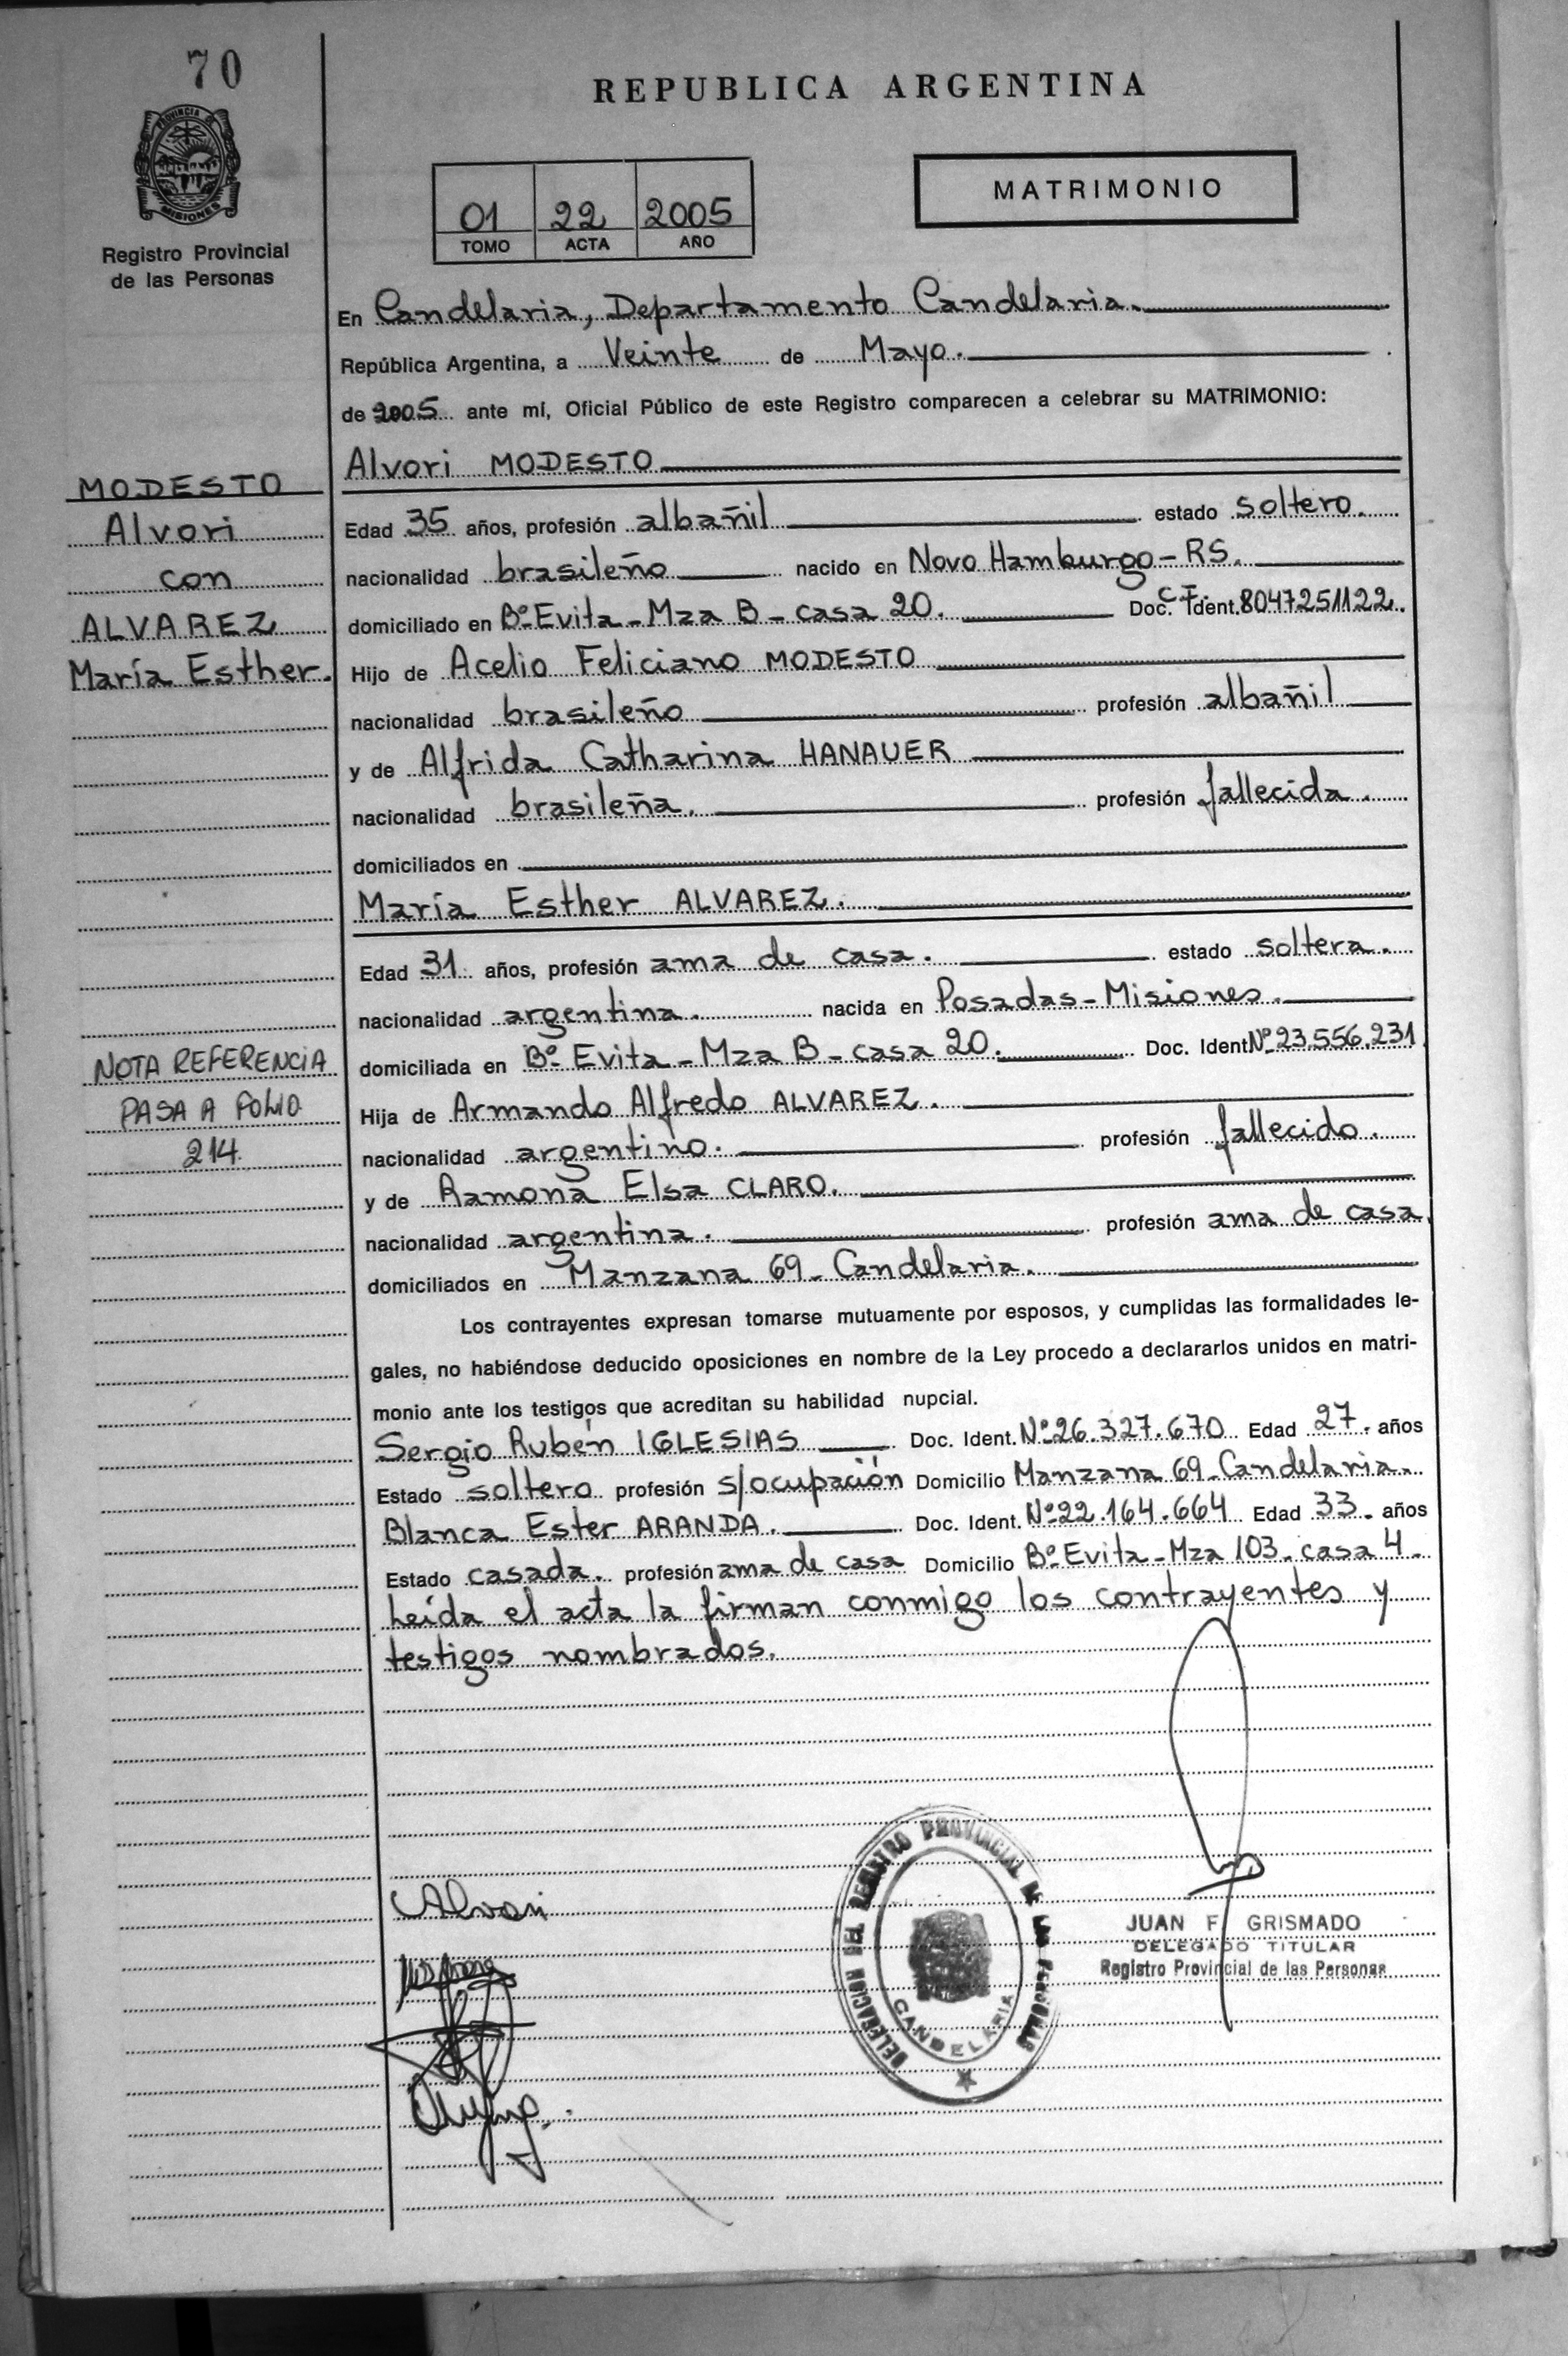 70
REPUBLICA ARGENTINA
PROVINCIA DE
MISIONES
Registro Provincial
de las Personas
01 22 2005
TOMO ACTA AÑO
MATRIMONIO
En Candelaria, Departamento Candelaria.
República Argentina, a Veinte de Mayo.
de 2005 ante mí, Oficial Público de este Registro comparecen a celebrar su MATRIMONIO:
Alvori MODESTO
MODESTO
Alvori
con
ALVAREZ
María Esther.
Edad 35 años, profesión albañil estado soltero.
nacionalidad brasileño nacido en Novo Hamburgo-RS.
domiciliado en Bº Evita - Mza B - casa 20. Doc. Ident. 8047251122.
Hijo de Acelio Feliciano MODESTO
nacionalidad brasileño profesión albañil
y de Alfrida Catharina HANAUER
nacionalidad brasileña. profesión fallecida.
domiciliados en
María Esther ALVAREZ.
Edad 31 años, profesión ama de casa. estado soltera.
nacionalidad argentina. nacida en Posadas-Misiones.
domiciliada en Bº Evita - Mza B - casa 20. Doc. Ident Nº 23.556.231
NOTA REFERENCIA
PASA A FOLIO
214.
Hija de Armando Alfredo ALVAREZ.
nacionalidad argentino. profesión fallecido.
y de Ramona Elsa CLARO.
nacionalidad argentina. profesión ama de casa.
domiciliados en Manzana 69 - Candelaria.
Los contrayentes expresan tomarse mutuamente por esposos, y cumplidas las formalidades le-
gales, no habiéndose deducido oposiciones en nombre de la Ley procedo a declararlos unidos en matri-
monio ante los testigos que acreditan su habilidad nupcial.
Sergio Rubén IGLESIAS Doc. Ident. Nº 26.327.670 Edad 27. años
Estado soltero profesión s/ocupación Domicilio Manzana 69 - Candelaria.
Blanca Ester ARANDA. Doc. Ident. Nº 22.164.664 Edad 33. años
Estado casada. profesión ama de casa Domicilio Bº Evita - Mza 103 - casa 4.
Leída el acta la firman conmigo los contrayentes y
testigos nombrados.
Alvori
DELEGACION DEL REGISTRO PROVINCIAL DE LAS PERSONAS
CANDELARIA
JUAN F. GRISMADO
DELEGADO TITULAR
Registro Provincial de las Personas